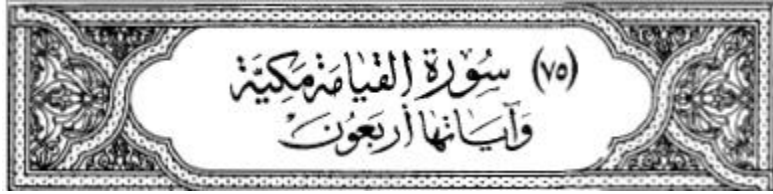 (٧٥) سُورَةِ القِيَامَةِ مَكِيَّة
وَآيَاتُهَا أَرْبَعُونَ